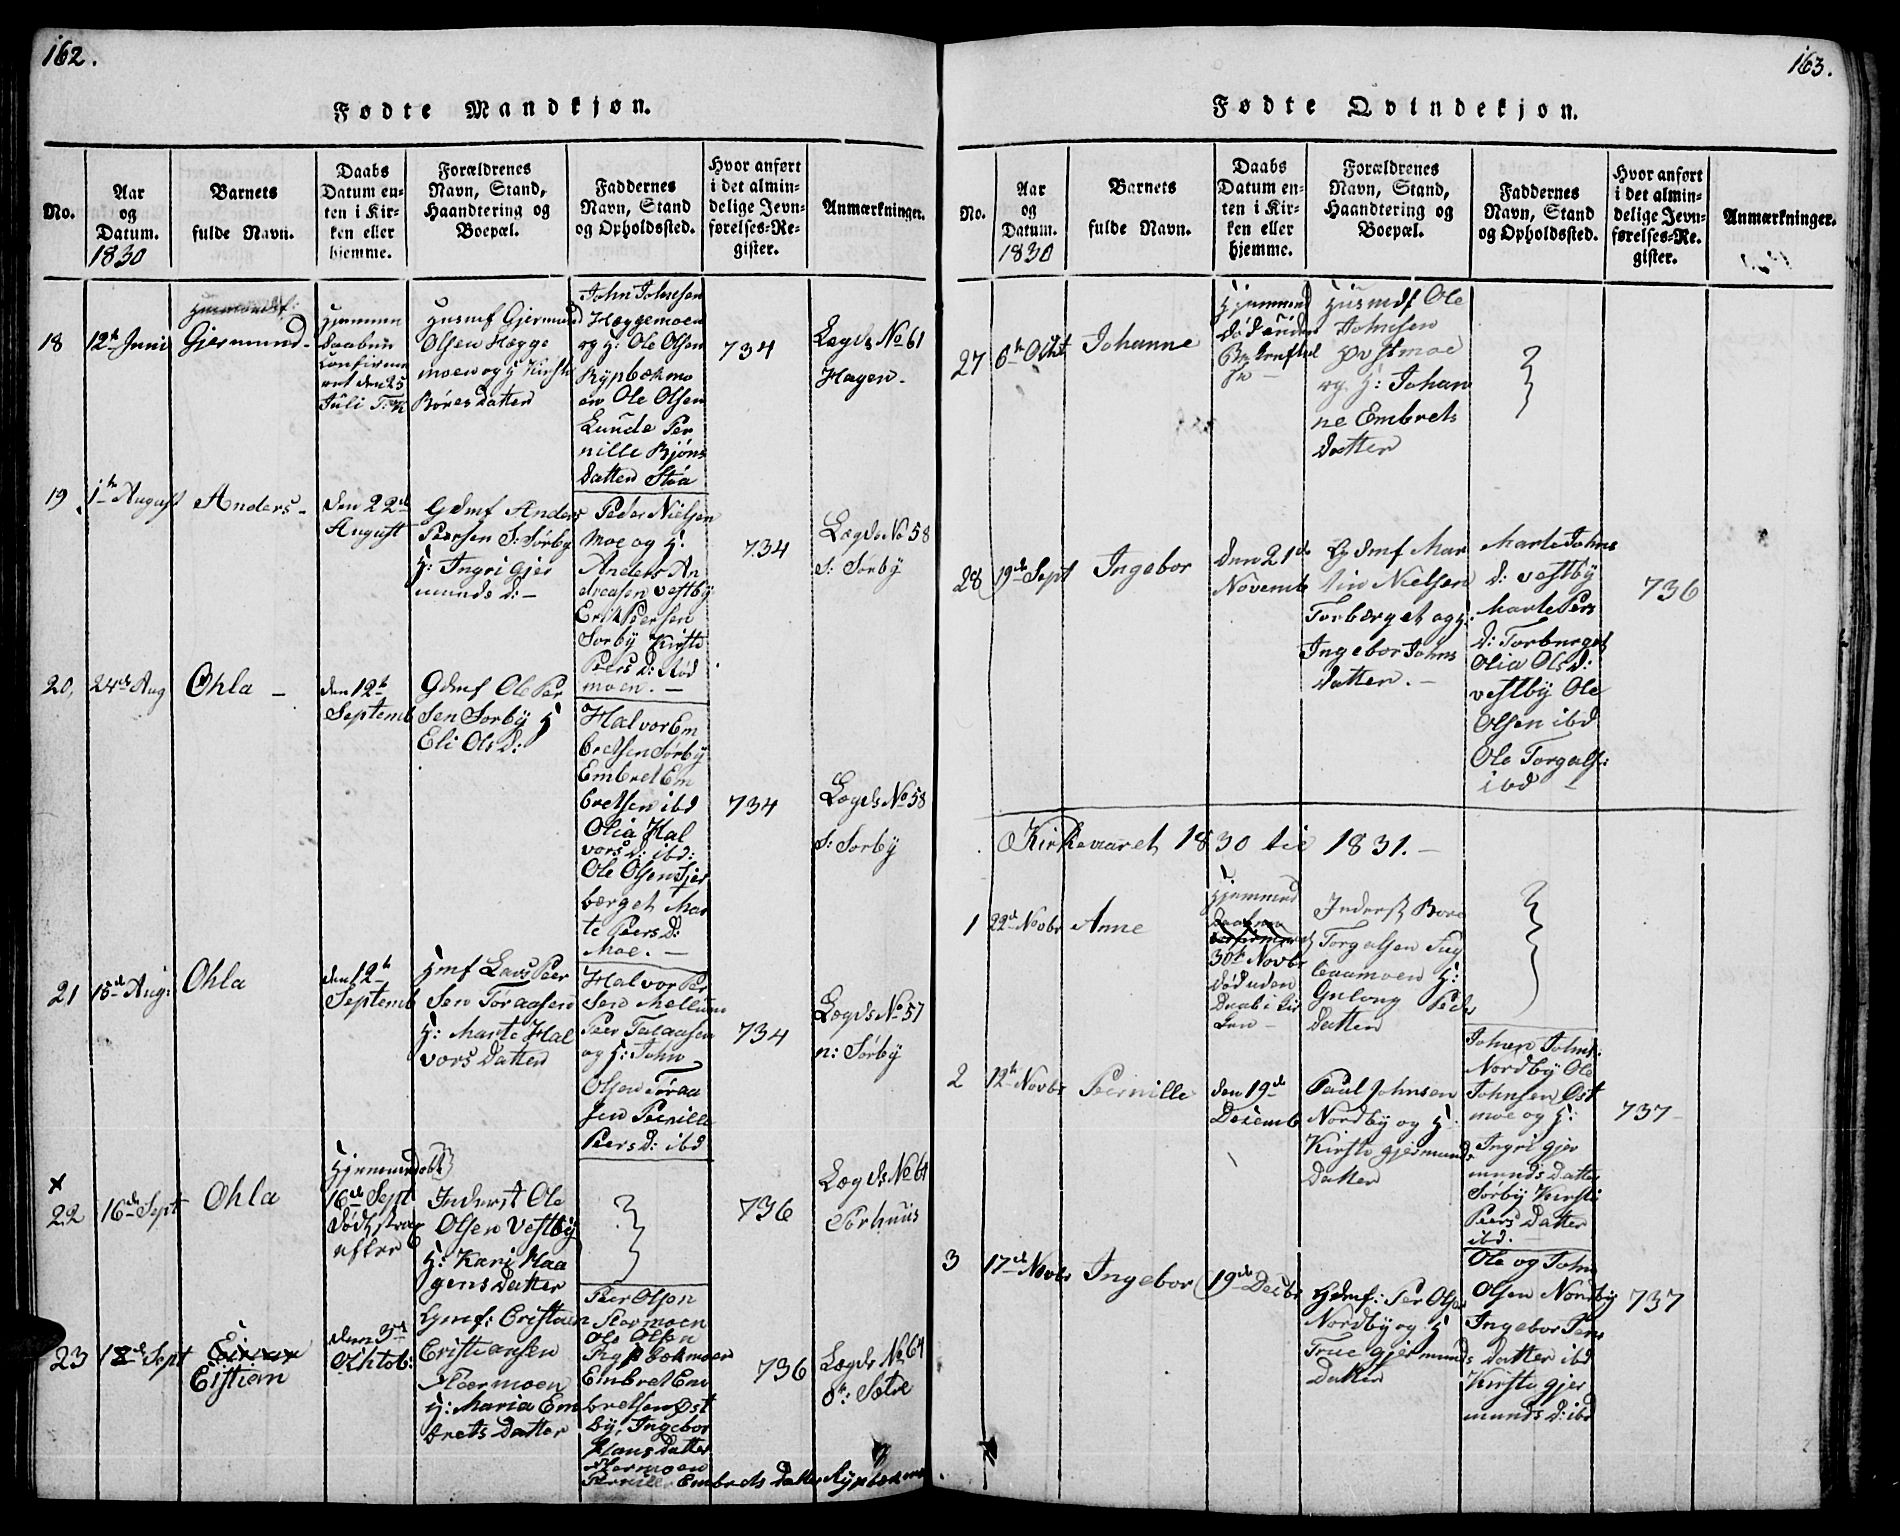 162.
Fødte Mandkjøn.
No.
Aar
og
Datum.
1830
Barnets
fulde Navn.
Daabs
Datum en-
ten i Kir-
ken eller
hjemme.
Forældrenes
Navn, Stand,
Haandtering og
Boepæl.
Faddernes
Navn, Stand
og Opholdssted.
Hvor anført
i det almin-
delige Jevn-
førelses-Re-
gister.
Anmærkninger.
18
12te Juni
Gjermund
Juli
Husmf Gjermund
Olsen Hægge
moen og H Kirsti
Børes datter
John Johnsen
Hæggemoen
og H: Ole Olsen
Rÿpbækmo
en Ole Olsen
Lunde Per
nille Bjøns
datter Støa
734
Lægds No 61
Hagen.
19
1te August
Anders
den 22de
August
Gdmf Anders
Peersen S: Sørby
H: Ingri Gjer
munds d:
Peder Nielsen
Moe og H:
Anders An
dreasen Vestby
Erik Peersen
Sørby Kirsti
Peers d: Rød
moen.
734
Lægds No 58
S: Sørby
20,
24de Aug
Ohla
den 12te
Septemb
Gdmf Ole Per
sen Sørby H
Eli Ols d:
Halvor Em
bretsen Sørby
Embret Em
bretsen ibd
Olia Hal
vors d: ibd:
Ole Olsen Sjer
bærget Mar
te Peers d:
Moe.
734
Lægds No 58
S: Sørby
21
15de Aug:
Ohla
den 12te
Septemb
Hmf Lars Peer
sen Toraasen
H: Marte Hal
vors datter
Halvor Per
sen Mellum
Peer Toraasen
og H: John
Olsen Toraa
sen Pernille
Peers d: ibd
734
Lægds No 57
n: Sørby
x
22
16de Sept
Ohla
Hjemmedøbt
16de Sept
død strax
efter
Inderst Ole
Olsen Vestby
H: Kari Haa
gens datter
736
Lægds No 61
Sørhuus
23
18de Sept
Cistian
den 3de
Ochtob:
Hmf: Cristian
Cristiansen
Floermoen
H: Maria Em
brets datter
Peer Olsen
Flormoen
Ole Olsen
Rypbækmoen
Embret Em
bretsen Øst
by, Ingebor
Hans datter
Flormoen
Pernille Embrets datter Rypbækmo
736
Lægds No 64
ø: Sætre
163.
Fødte Qvindekjøn.
No.
Aar
og
Datum.
1830
Barnets
fulde Navn.
Daabs
Datum en-
ten i Kir-
ken eller
hjemme.
Forældrenes
Navn, Stand,
Haandtering og
Boepæl.
Faddernes
Navn, Stand
og Opholdssted.
Hvor anført
i det almin-
delige Jevn-
førelses-Re-
gister.
Anmærkninger.
27
6te Ocht
Johanne
Husmdf Ole
Johnsen
Østmoe
og H: Johan
ne Embrets
datter
28
19de Sept
Ingebor
den 21de
Novemb
Gdmf Mar
tin Nielsen
Torberget og H:
Ingebor Johns
datter.
Marte Johns
d: Vestby
Marte Pers
d: Torberget
Olia Ols d:
Vestby Ole
Olsen ibd
Ole Torgals:
ibd
Kirkeaaret 1830 til 1831.
1
22de Novbr
Anne
Hjemmed
30te Novbr
død uden
Daab i Kir
ken
Inderst Bore
Torgalsen Fug
leaamoen H:
Gulong Peders
datter
2
12te Novbr
Pernille
den 19de
Decemb
Paul Johnsen
Nordby og H
Kirsti Gjermunds
datter
Johan Johns:
Nordby Ole
Johnsen Øst
moe og H:
Ingri Gjer
munds datter
Sørby Kirsti
Peers datter
ibd.
737
3
17de Novbr
Ingebor
19de Decbr
Gdmf: Per Olsen
Nordby og H
True Gjermunds
datter
Ole og John
Olsen Nordby
Ingebor Pers
datter ibd
Kirsti Gjer
munds d: ibd
737